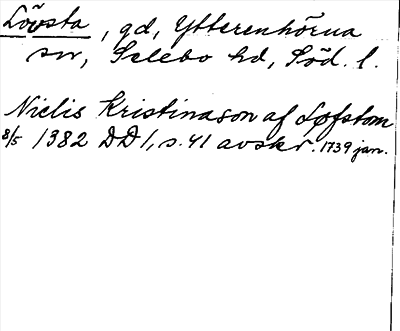 Lövsta, gd, Ytterenhörna
sn, Selebo hd, Söd. l.
Niclis Kristinason af Løfstom
8/5 1382 DD 1, s. 41 avskr. 1739 jan.